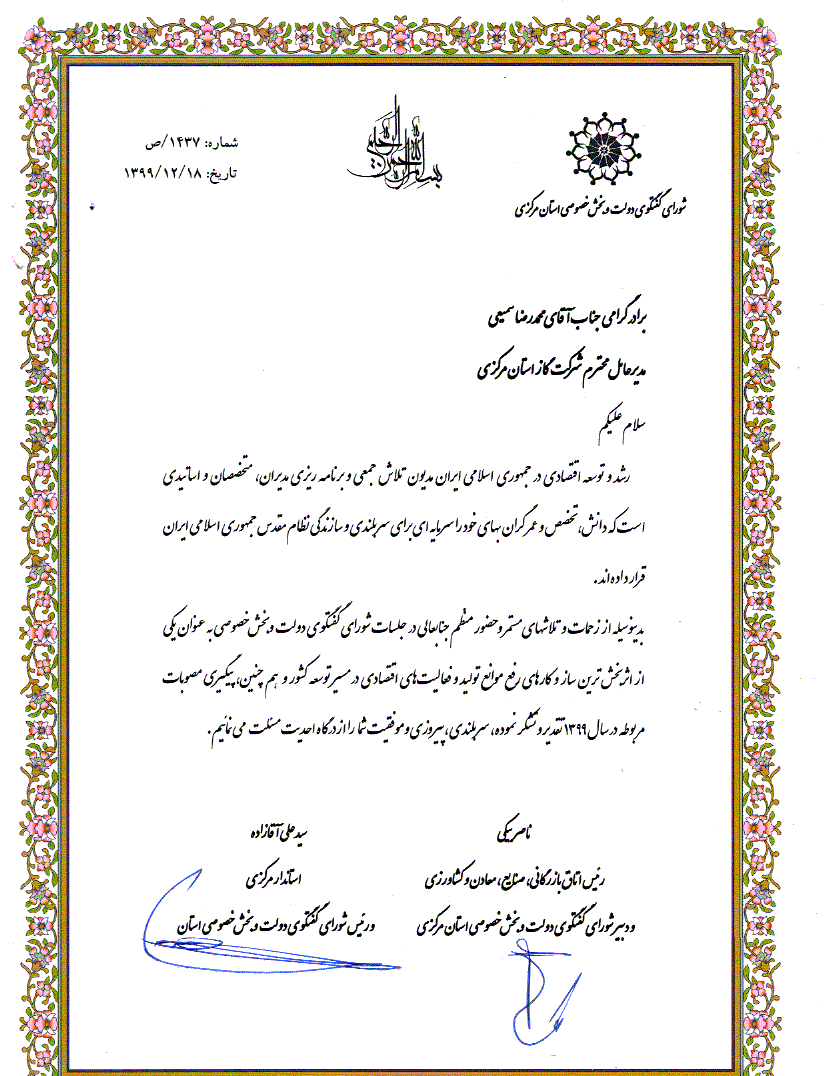 بسم الله الرحمن الرحیم
شماره: ۱۴۳۷/ص
تاریخ: ۱۳۹۹/۱۲/۱۸
شورای گفتگوی دولت و بخش خصوصی استان مرکزی
برادر گرامی جناب آقای محمدرضا سمیعی
مدیرعامل محترم شرکت گاز استان مرکزی
سلام علیکم
رشد و توسعه اقتصادی در جمهوری اسلامی ایران مدیون تلاش جمعی و برنامه ریزی مدیران، متخصصان و اساتیدی
است که دانش، تخصص و عمر گران بهای خود را سرمایه ای برای سربلندی و سازندگی نظام مقدس جمهوری اسلامی ایران
قرار داده اند.
بدینوسیله از زحمات و تلاشهای مستمر و حضور منظم جنابعالی در جلسات شورای گفتگوی دولت و بخش خصوصی به عنوان یکی
از اثربخش ترین ساز و کارهای رفع موانع تولید و فعالیت های اقتصادی در مسیر توسعه کشور و هم چنین، پیگیری مصوبات
مربوطه در سال ۱۳۹۹ تقدیر و تشکر نموده، سربلندی، پیروزی و موفقیت شما را از درگاه احدیت مسئلت می نمائیم.
ناصر بیکی
رئیس اتاق بازرگانی، صنایع، معادن و کشاورزی
و دبیر شورای گفتگوی دولت و بخش خصوصی استان مرکزی
سید علی آقازاده
استاندار مرکزی
و رئیس شورای گفتگوی دولت و بخش خصوصی استان